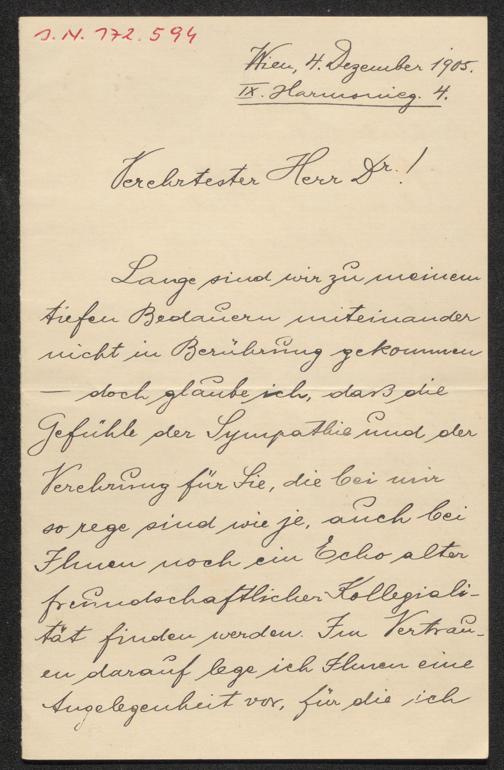 J.N. 172.594
Wien, 4. Dezember 1905.
IX. Harmonieg. 4.
Verehrtester Herr Dr.!
Lange sind wir zu meinem
tiefen Bedauern miteinander
nicht in Berührung gekommen
— doch glaube ich, daß die
Gefühle der Sympathie und der
Verehrung für Sie, die bei mir
so rege sind wie je, auch bei
Ihnen noch ein Echo alter
freundschaftlicher Kollegiali-
tät finden werden. Im Vertrau-
en darauf lege ich Ihnen eine
Angelegenheit vor, für die ich